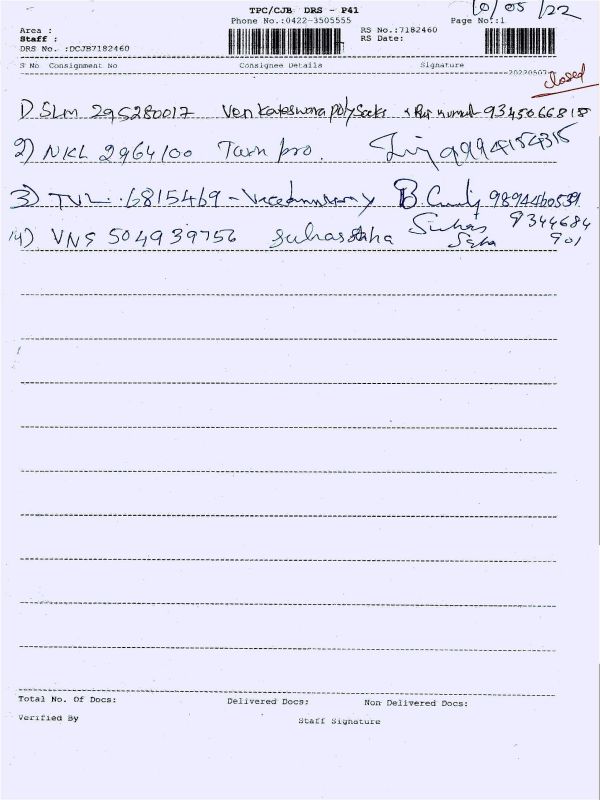 TPC/CJB DRS - P41
10/05/22
Phone No.:0422-3505555
Page No.:1
Area :
RS No.:7182460
Staff :
RS Date:
DRS No. :DCJB7182460
S No Consignment No Consignee Details Signature
20220507
closed
1) SLM 295280017 Venkateswara poly Sacks 9345066818
2) NKL 2964100 Tarn pro. 9994154315
3) TVL 6815469 - B. 9894460539
4) VNS 504939756 Suhas Saha Suhas 9344684
Saha 901
Total No. Of Docs: Delivered Docs: Non Delivered Docs:
Verified By Staff Signature